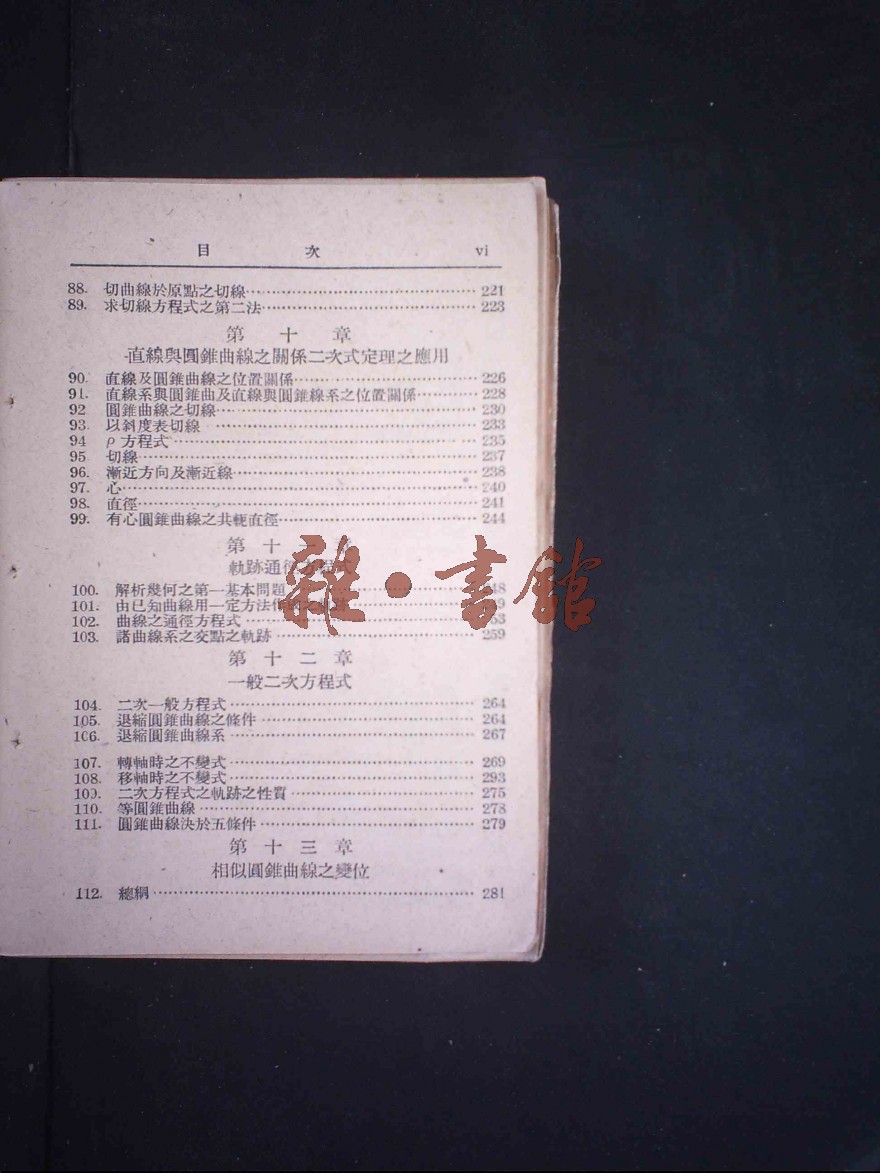 目 次 vi
88. 切曲線於原點之切線 221
89. 求切線方程式之第二法 223
第 十 章
直線與圓錐曲線之關係二次式定理之應用
90. 直線及圓錐曲線之位置關係 226
91. 直線系與圓錐曲及直線與圓錐線系之位置關係 228
92 圓錐曲線之切線 230
93. 以斜度表切線 233
94 ρ方程式 235
95 切線 237
96. 漸近方向及漸近線 238
97. 心 240
98. 直徑 241
99. 有心圓錐曲線之共軛直徑 244
第 十 一 章
軌跡通徑方程式
100. 解析幾何之第一基本問題
101. 由已知曲線用一定方法
102. 曲線之通徑方程式
103. 諸曲線系之交點之軌跡 259
第 十 二 章
一般二次方程式
104. 二次一般方程式 264
105. 退縮圓錐曲線之條件 264
106. 退縮圓錐曲線系 267
107. 轉軸時之不變式 269
108. 移軸時之不變式 293
109. 二次方程式之軌跡之性質 275
110. 等圓錐曲線 278
111. 圓錐曲線決於五條件 279
第 十 三 章
相似圓錐曲線之變位
112. 總綱 281
雜·書館